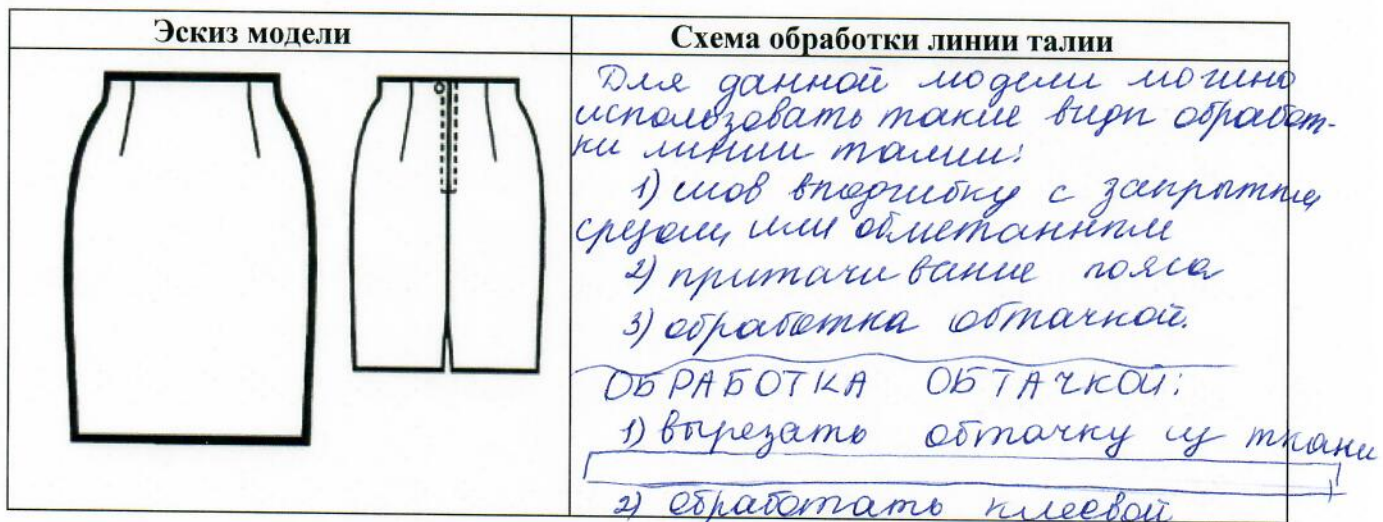 Эскиз модели
Схема обработки линии талии
Для данной модели можно
использовать такие виды обработ-
ки линии талии:
1) шов вподгибку с закрытым
срезом, или обметанным
2) притачивание пояса
3) обработка обтачкой.
ОБРАБОТКА ОБТАЧКОЙ:
1) вырезать обтачку из ткани
2) обработать клеевой